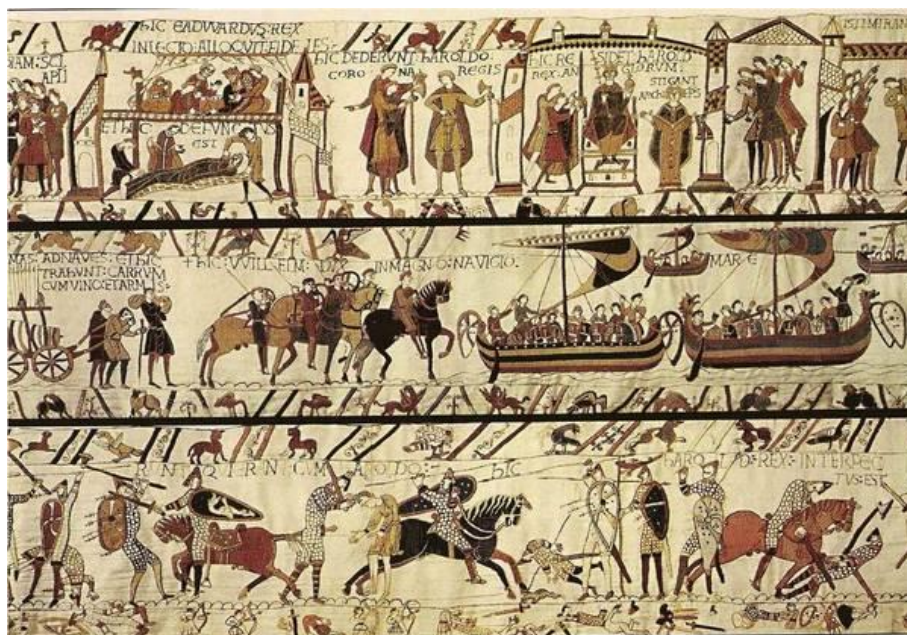 HIC EADVVARDVS: REX
INLECTO: ALLOQVIT: FIDELES:
IAM: SCI
APII
ET HIC DEFUNCTUS
EST
HIC DEDERVNT: hAROLDO:
CORONA REGIS
HIC RESIDET: hAROLD
REX: ANGLORVM:
STIGANT
ARCHIEPS
ISTI MIRAN
MAS: ADNAVES: ET hIC
TRAhUNT: CARRVM
CVM VINO: ET ARMIS:
+ hIC: VVILLELM: DVX INMAGNO: NAVIGIO:
MARE
RVNT: QVI ERANT: CVM hAROLDO:- hIC hAROLD: REX: INTERFEC
TVS: EST